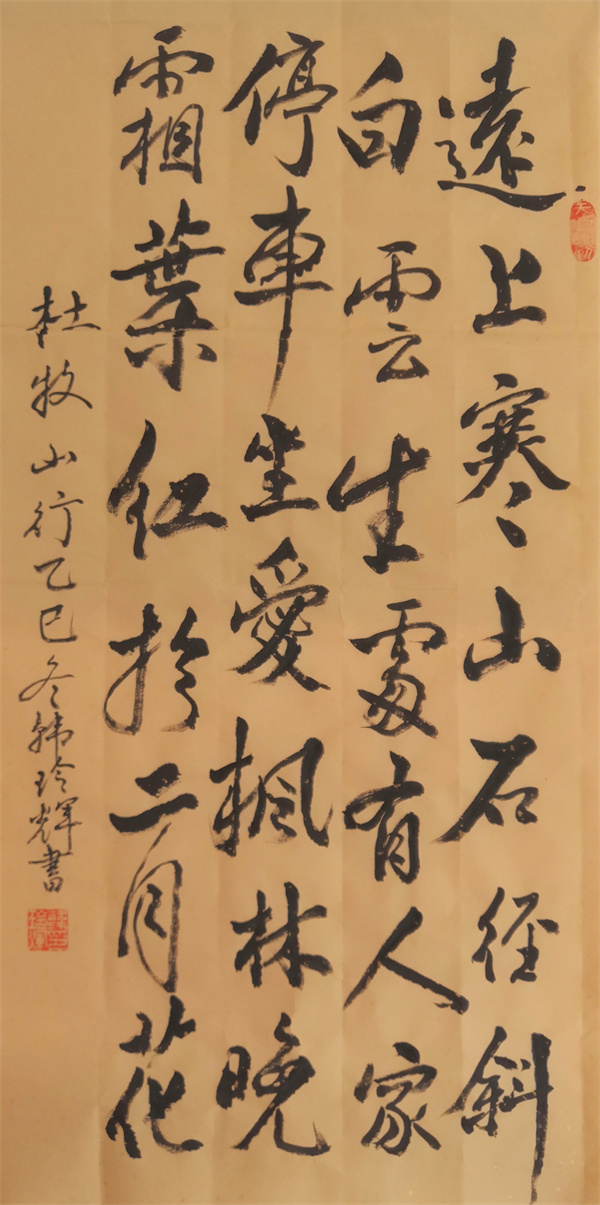 遠上寒山石径斜
白雲生處有人家
停車坐愛楓林晚
霜葉紅於二月花
杜牧山行乙巳冬韩玲輝書